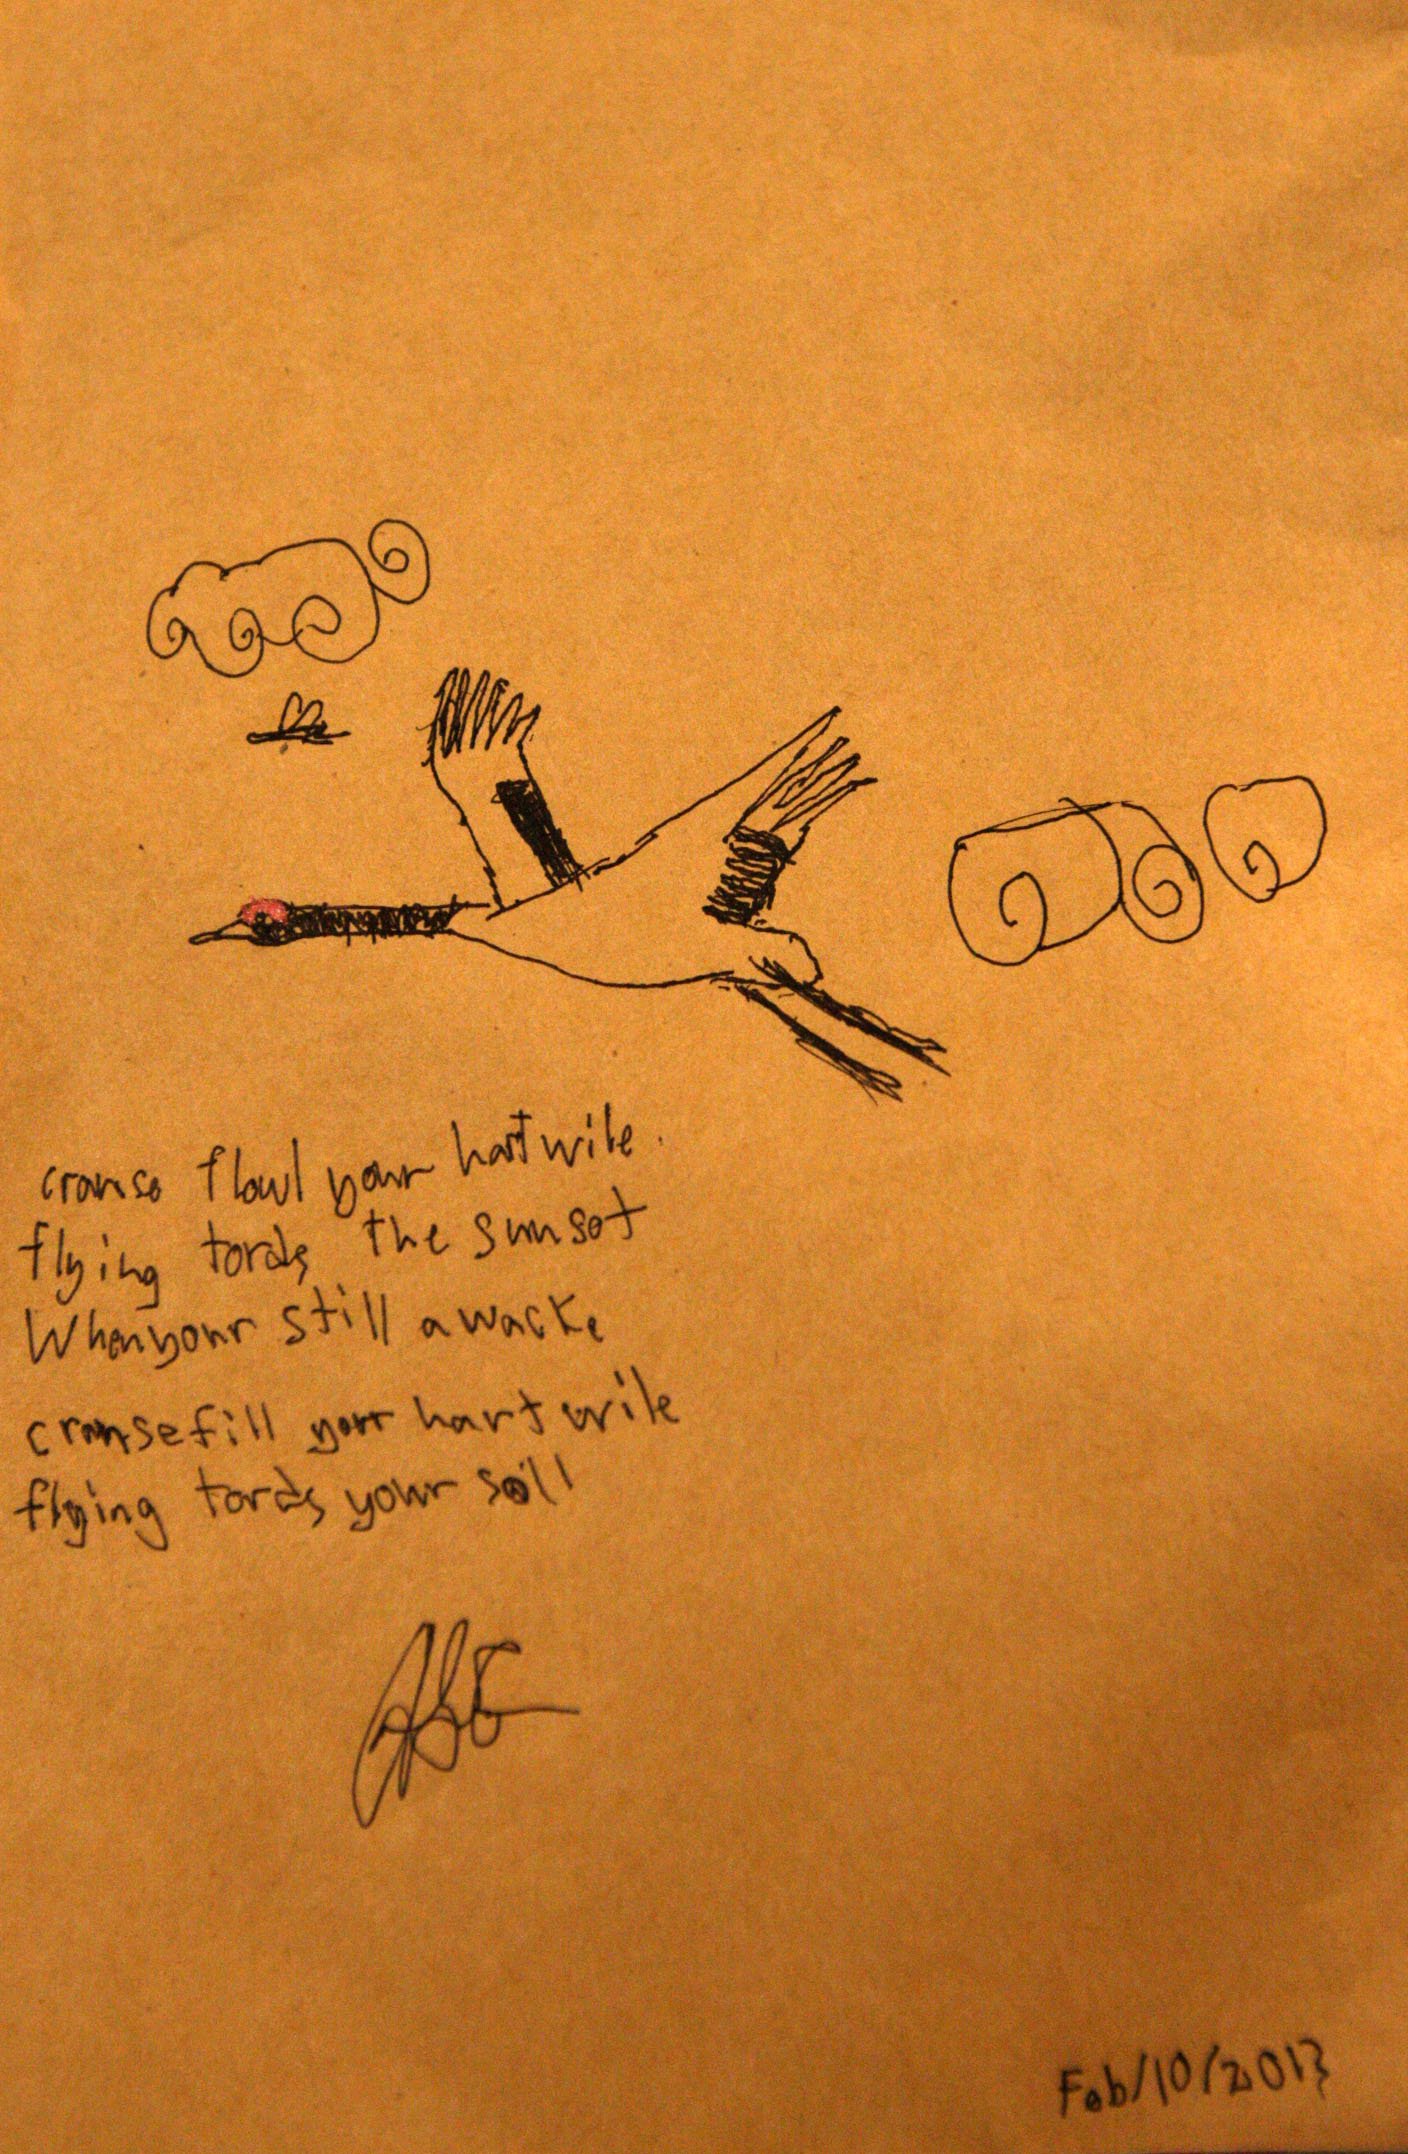 cranse flowl your hart wile
flying tords the sunset
When your still awacke
cranse fill your hart wile
flying tords your soll
Feb/10/2013